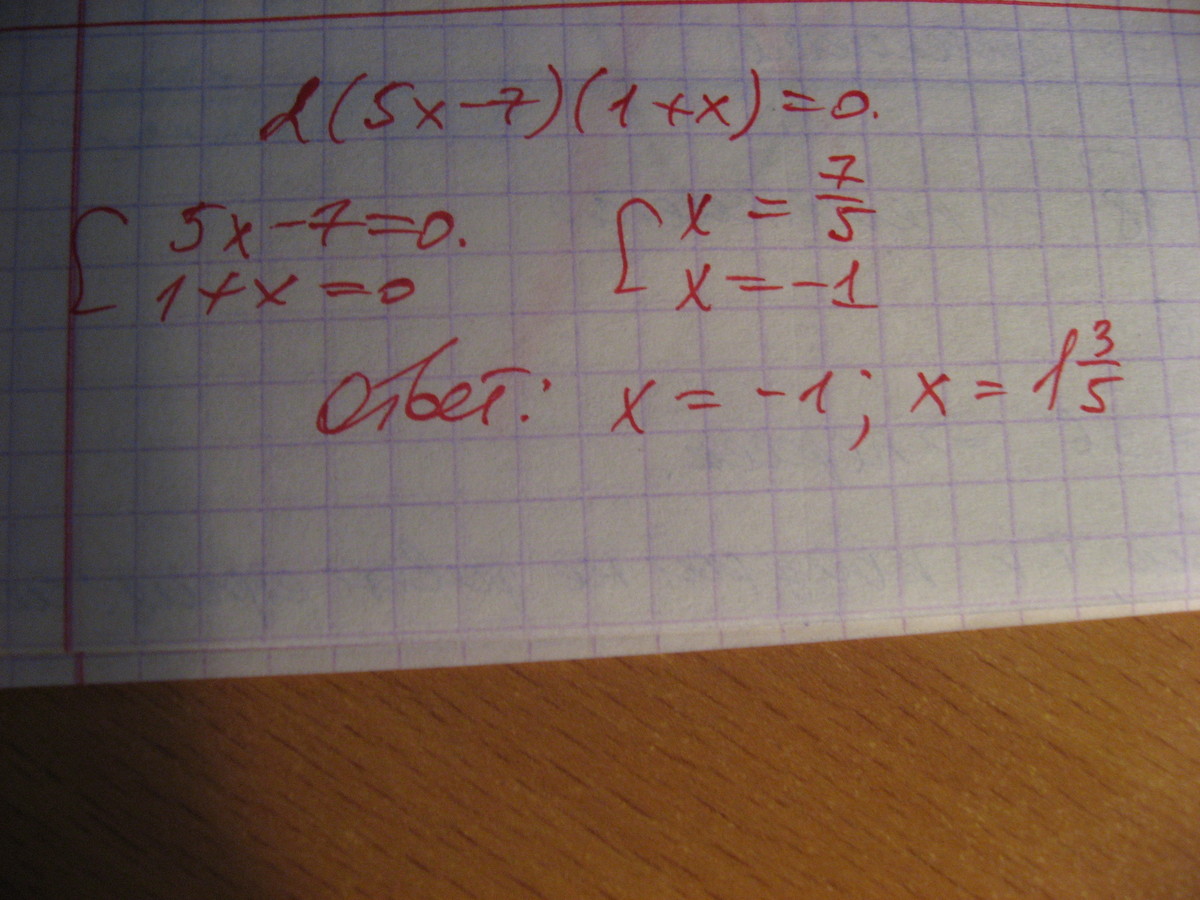 2(5x-7)(1+x)=0.
5x-7=0. x = 7/5
1+x=0 x=-1
Ответ: x = -1; x = 1 3/5